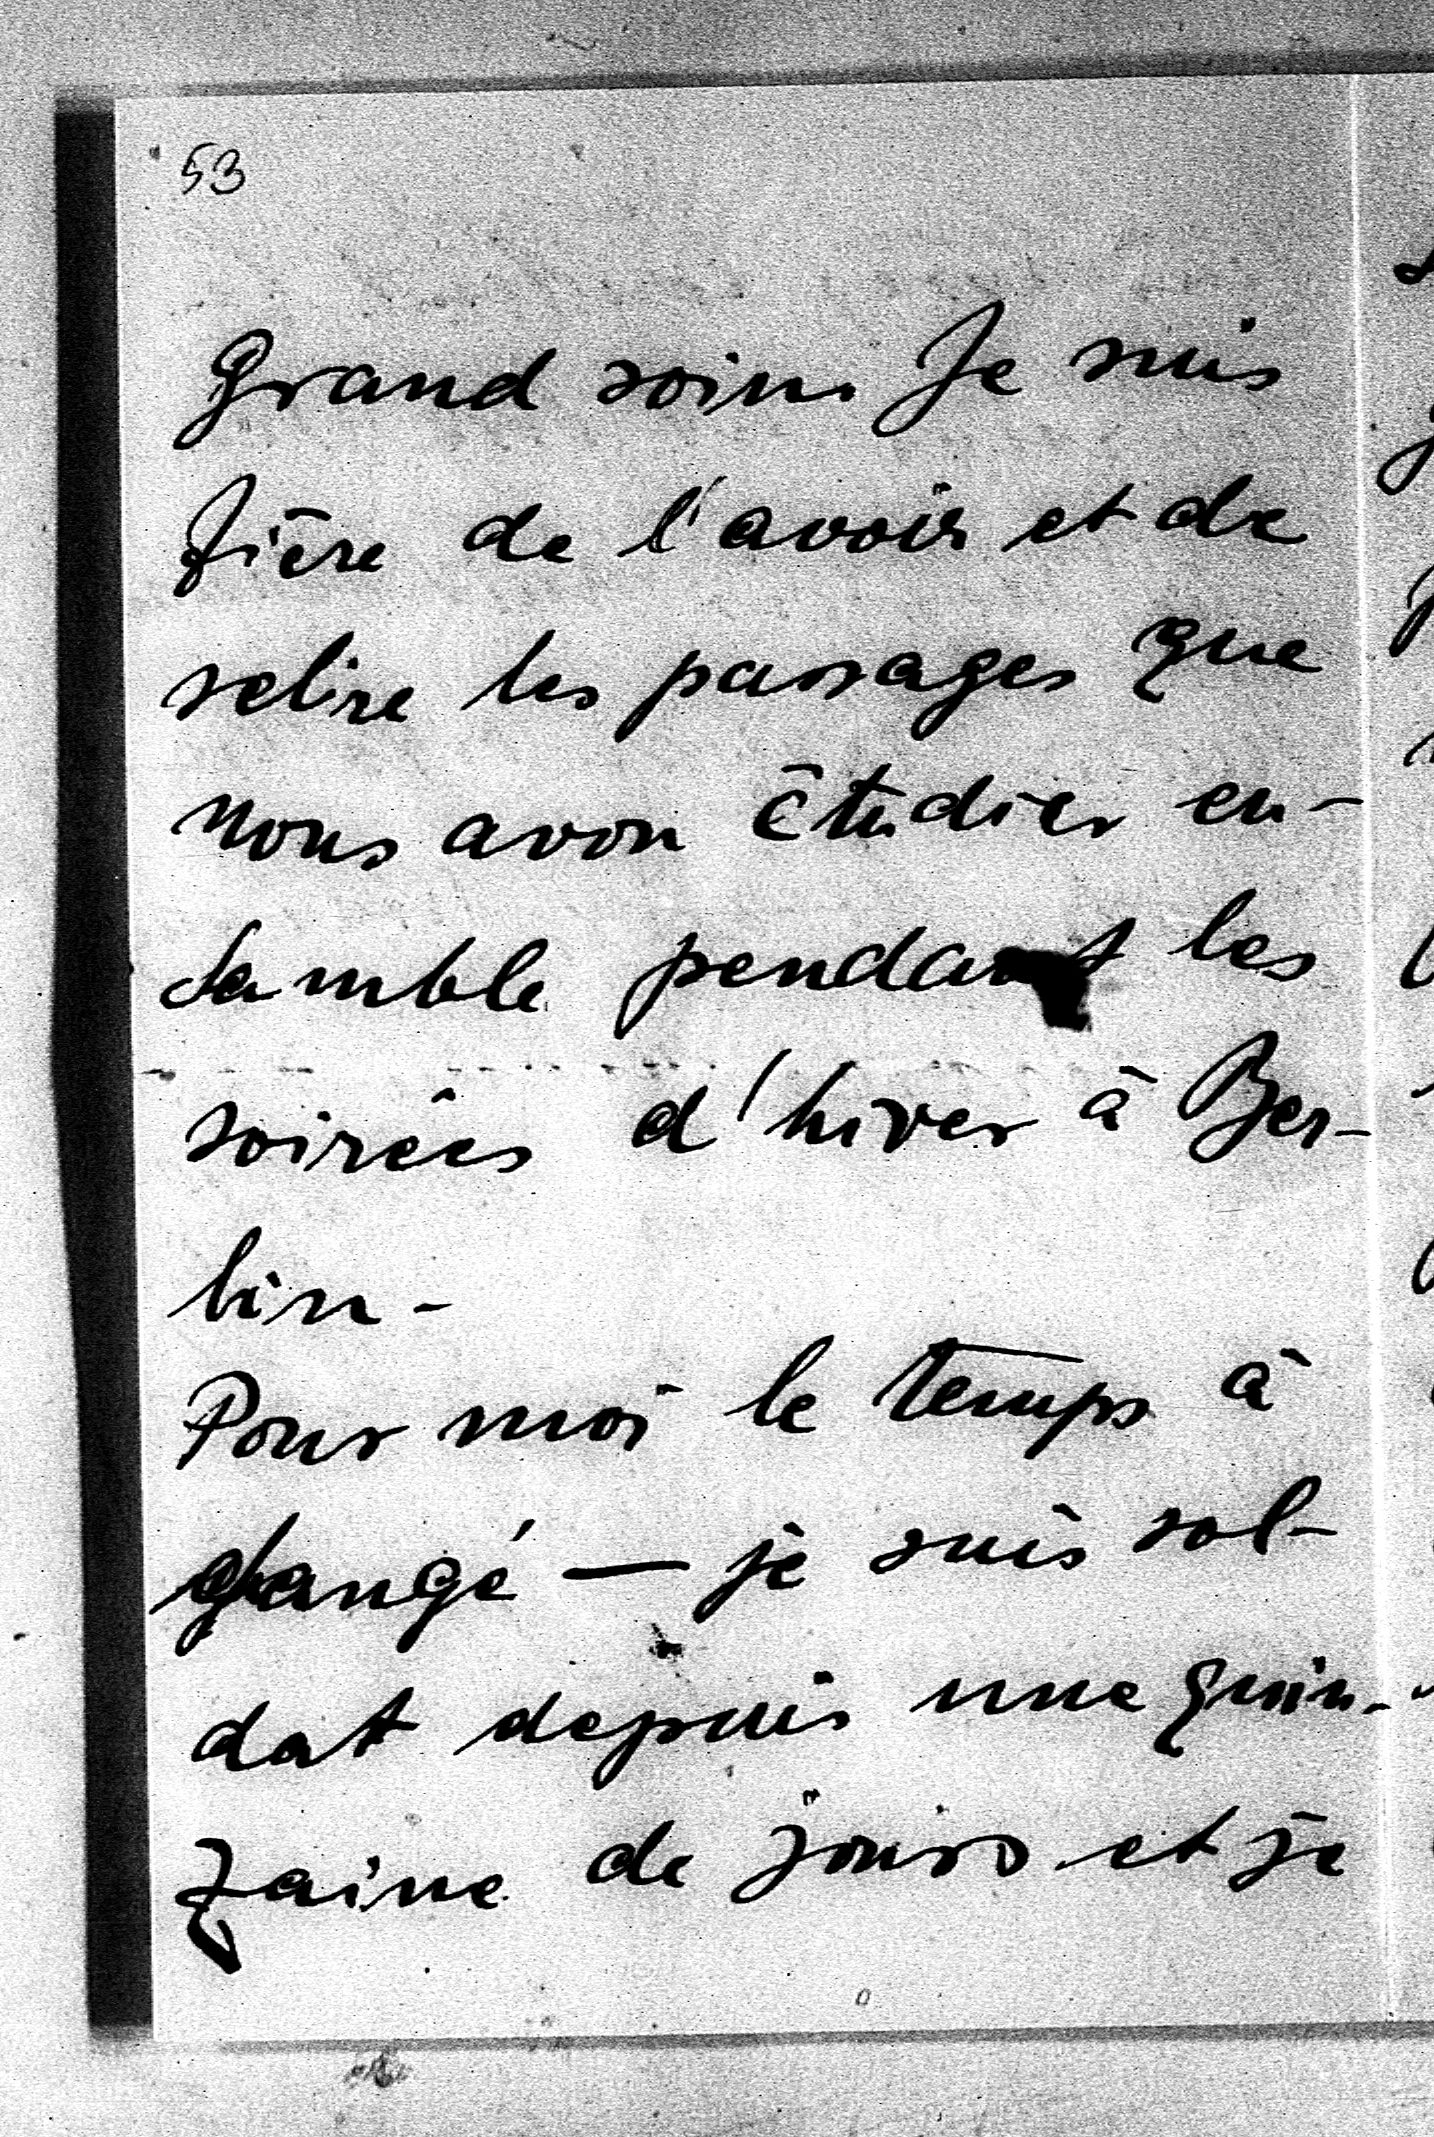 53
grand soin. Je suis
fière de l'avoir et de
relire les passages que
nous avon étudier en-
samble pendant les
soirées d'hiver à Ber-
lin -
Pour moi le temps à
changé — je suis sol-
dat depuis une quin-
zaine de jours et je